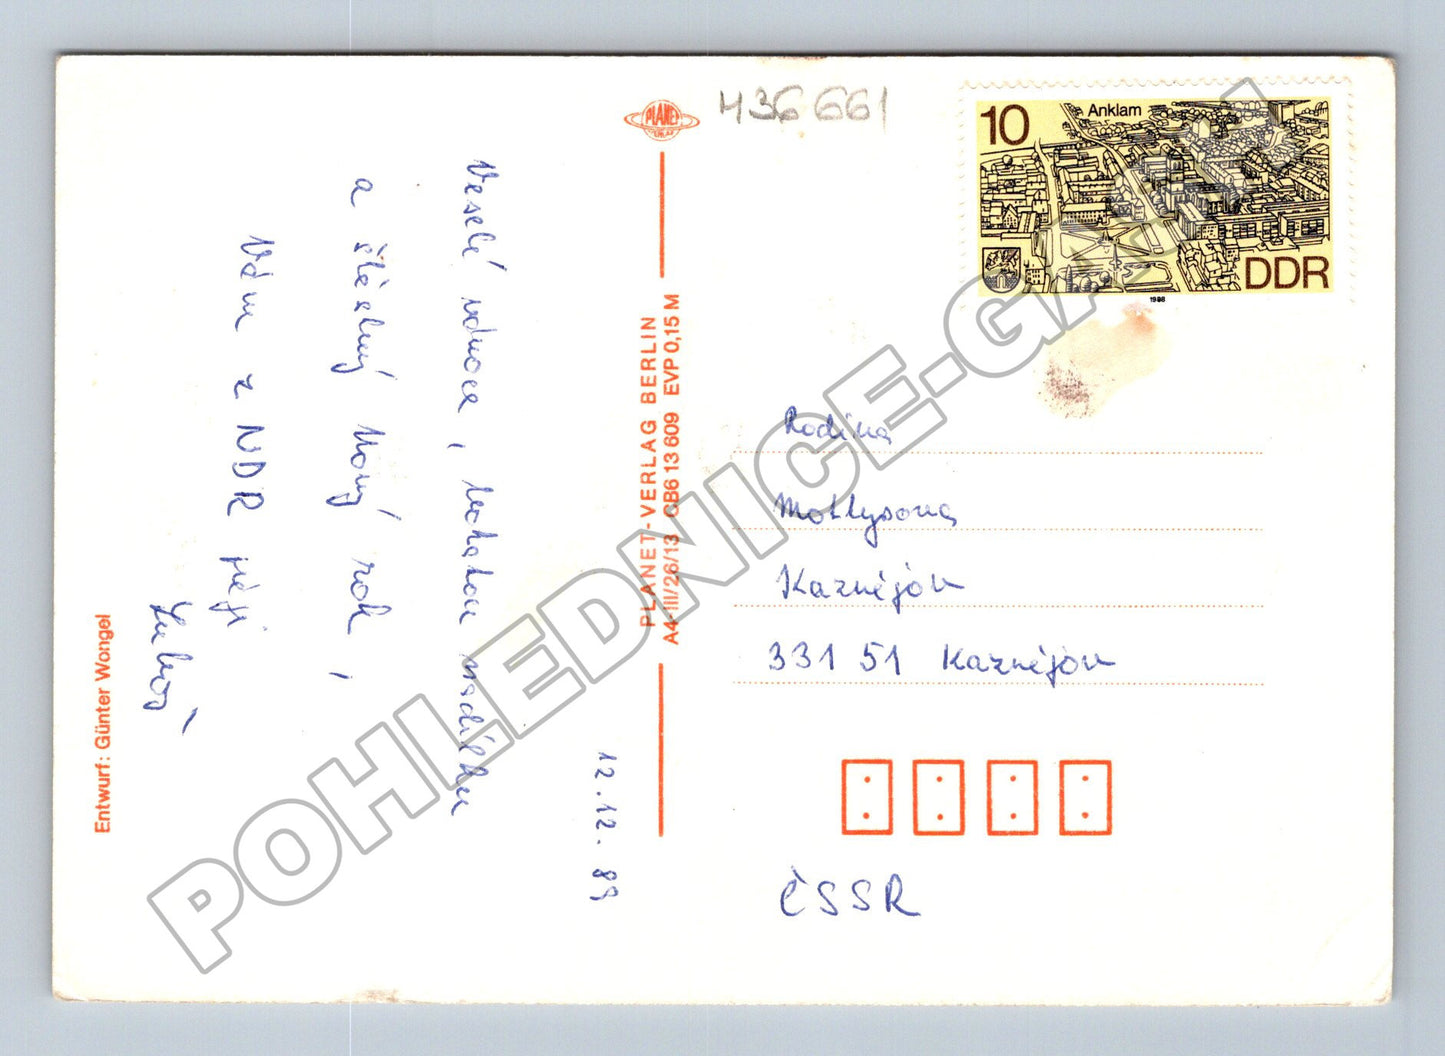 436 661
PLANET
10
Anklam
DDR
1988
12.12.89
Veselé vánoce, bohatou nadílku
a šťastný Nový rok,
Vám z NDR přejí
Entwurf: Günter Wongel
PLANET-VERLAG BERLIN
A4 III/26/13 GB6 13 609 EVP 0,15 M
Rodina
Kaznějov
331 51 Kaznějov
ČSSR
POHLEDNICE-GALERIE